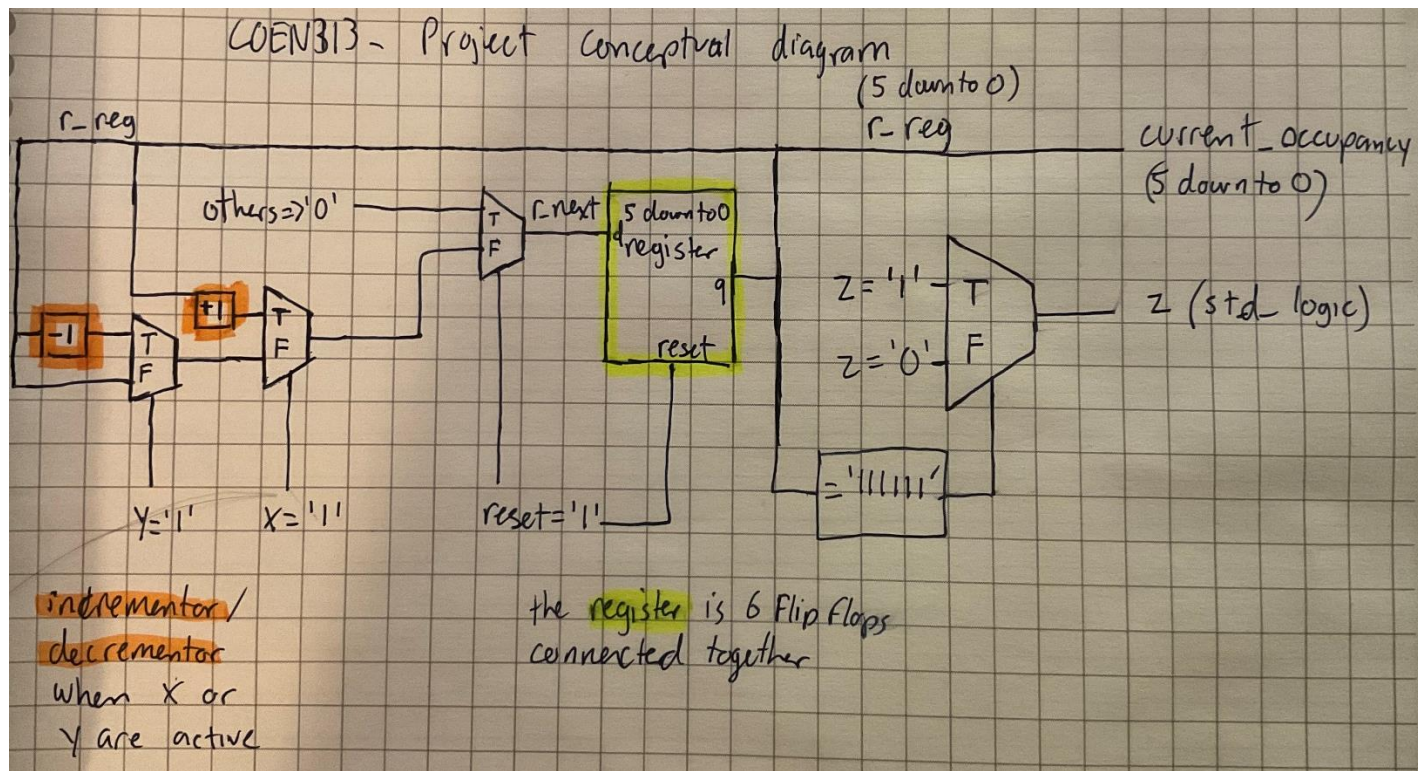 COEN313- Project conceptual diagram
(5 downto 0)
r_reg
r_reg
current_occupancy
(5 downto 0)
others=>'0'
T
F
r_next
5 downto 0
d
register
q
reset
-1
T
F
+1
T
F
Z='1'
T
Z='0'
F
Z (std_logic)
='111111'
Y='1'
X='1'
reset='1'
incrementor/
decrementor
when X or
Y are active
the register is 6 Flip Flops
connected together